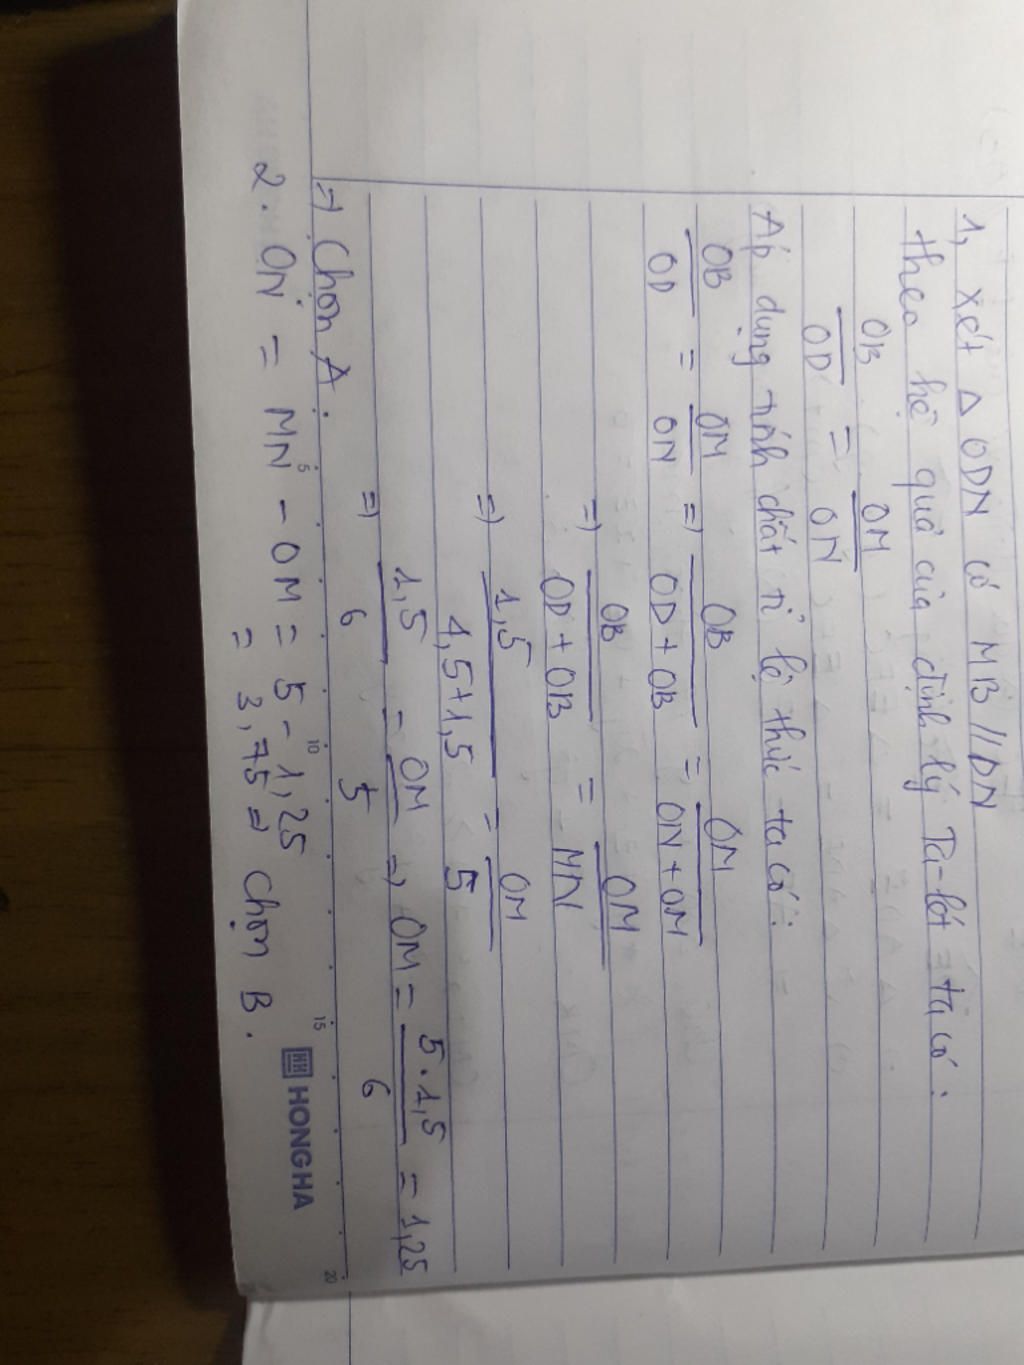 1, xét Δ ODN có MB // DN
theo hệ quả của định lý Ta-lét ta có:
OB/OD = OM/ON
Áp dụng tính chất tỉ lệ thức ta có:
OB/OD = OM/ON => OB/OD + OB = OM/ON + OM
=> OB/OD + OB = OM/MN
=> 1,5/4,5+1,5 = OM/5
=> 1,5/6 = OM/5 => OM = 5.1,5/6 = 1,25
=> Chọn A.
2. ON = MN - OM = 5 - 1,25
= 3,75 => Chọn B.
5 10 15 20
HH HONG HA